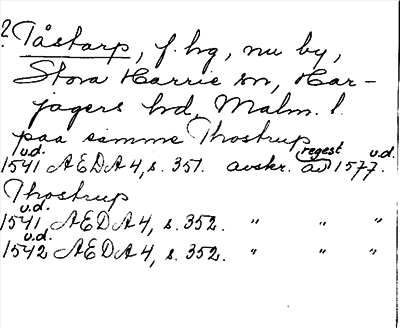 ? Tåstarp, f. hg, nu by,
Stora Harrie sn, Har-
jagers hd, Malm. l.
paa samme Thostrup
u.d. regest u.d.
1541 AEDA 4, s. 351. avskr. av 1577.
Thostrup
u.d.
1541 AEDA 4, s. 352. " " "
u.d.
1542 AEDA 4, s. 352. " " "